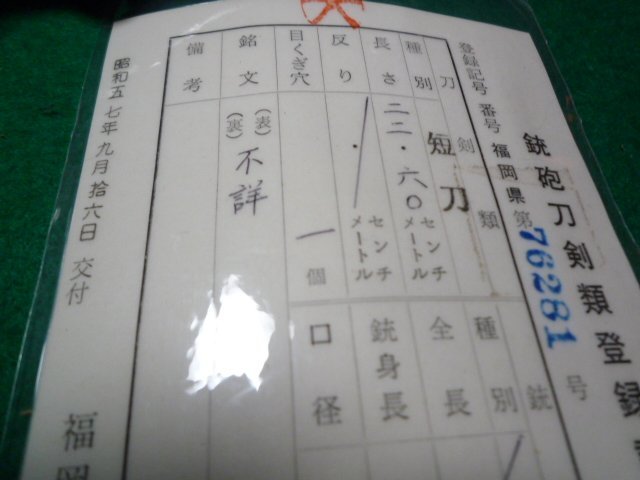 銃砲刀剣類登録
登録記号 番号 福岡県 第76281号
刀剣類
種別 短刀
長さ 二二・六〇センチメートル
反り ・センチメートル
目くぎ穴 一個
銘文 (表) (裏) 不詳
備考
銃
種別
全長
銃身長
口径
昭和五七年九月拾六日 交付
福岡